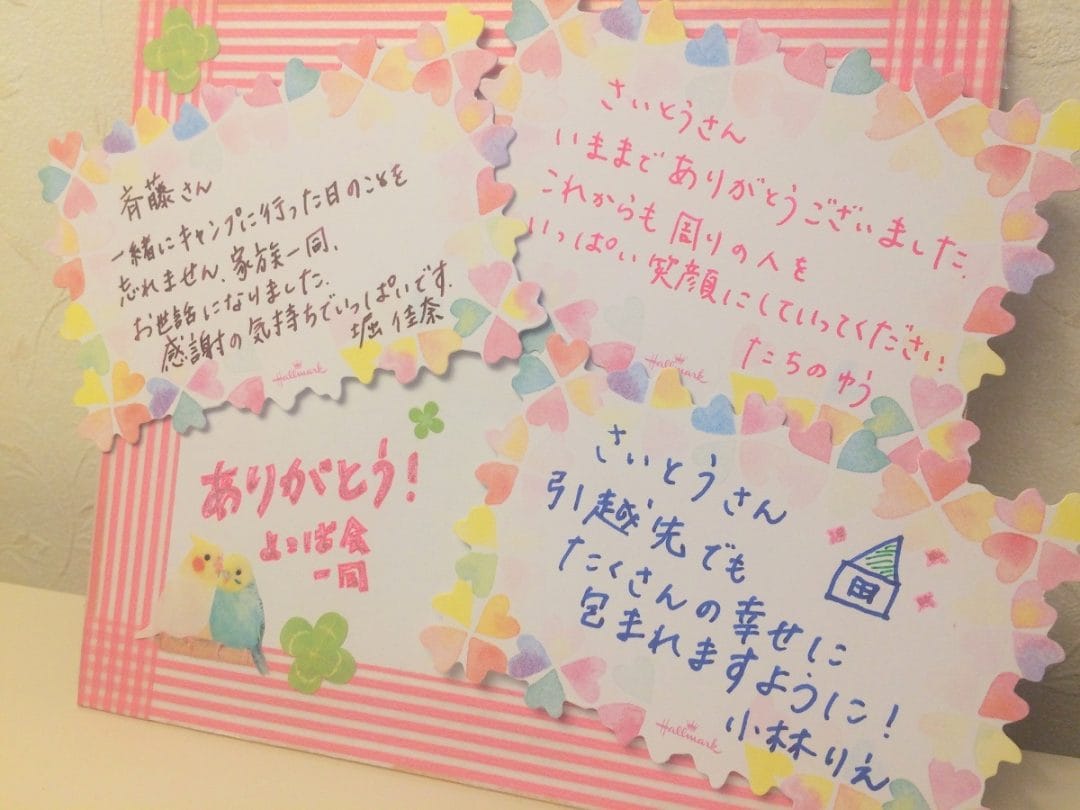 斉藤さん
一緒にキャンプに行った日のことを
忘れません。家族一同、
お世話になりました。
感謝の気持ちでいっぱいです。
堀 佳奈
Hallmark
さいとうさん
いままでありがとうございました。
これからも周りの人を
いっぱい笑顔にしていってください!
たちのゆう
Hallmark
ありがとう!
よつば会
一同
さいとうさん
引越先でも
たくさんの幸せに
包まれますように!
小林りえ
Hallmark